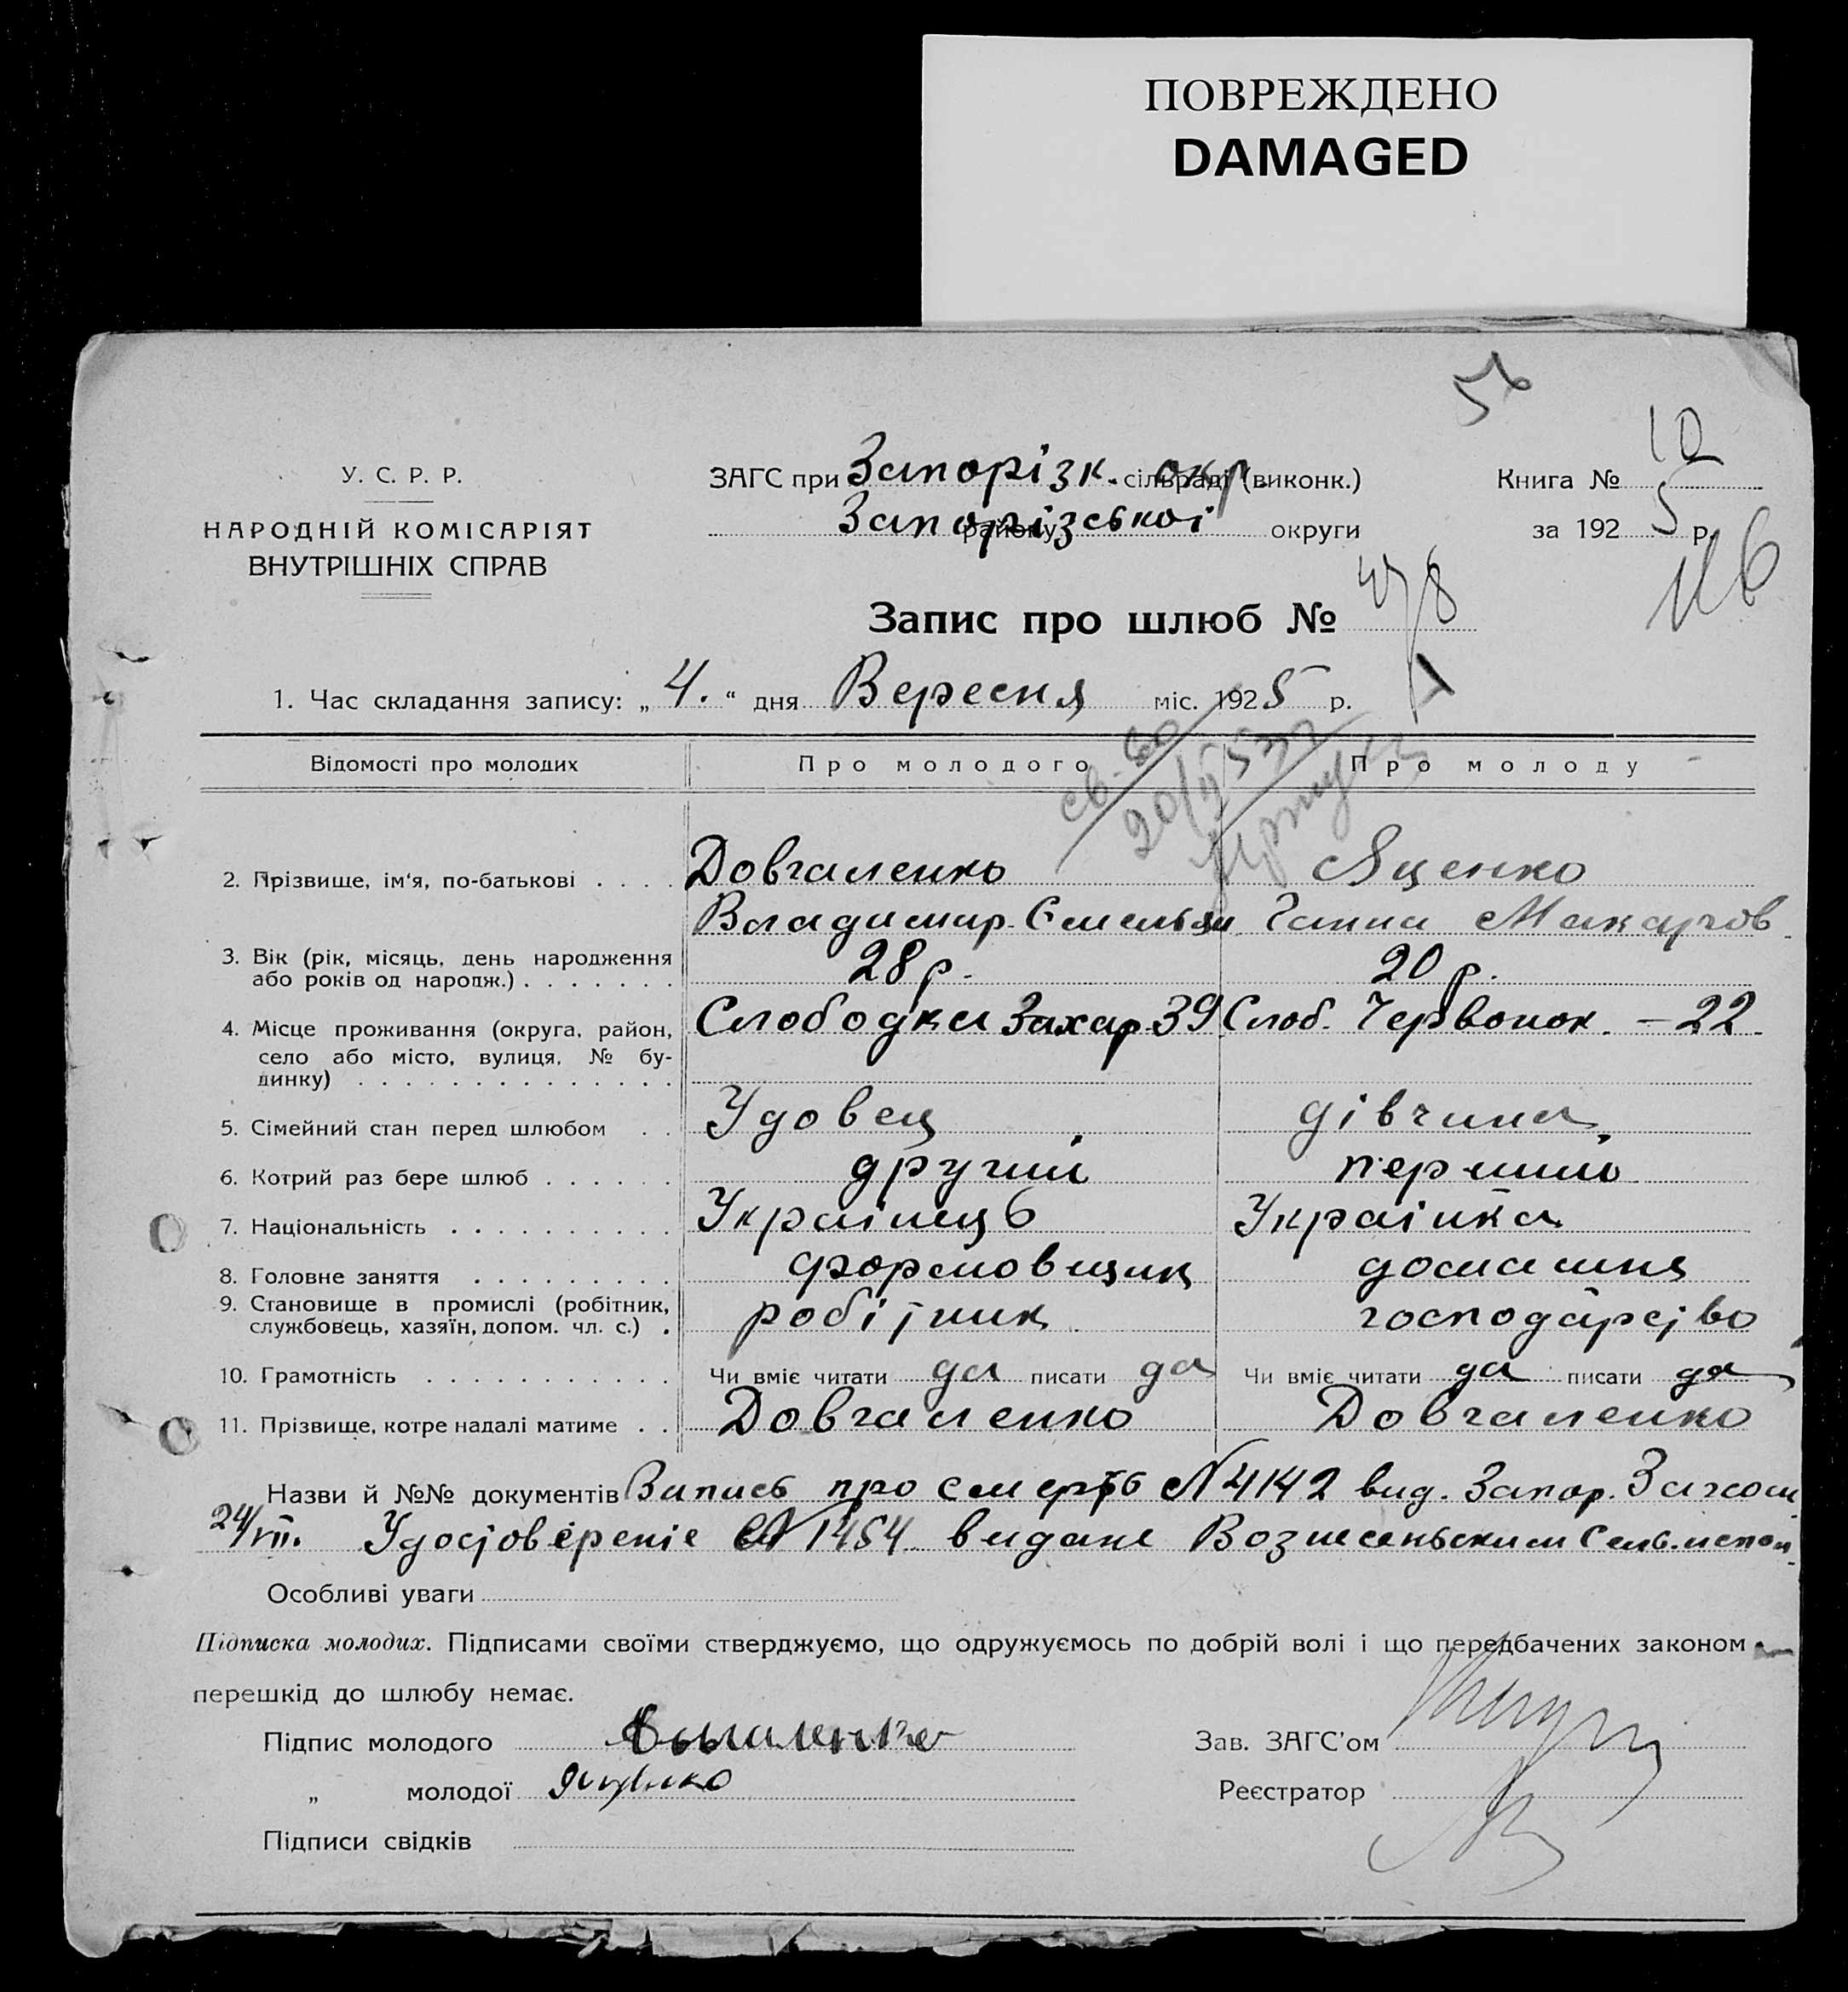 ПОВРЕЖДЕНО
DAMAGED
56
У. С. Р. Р.
НАРОДНІЙ КОМІСАРІЯТ
ВНУТРІШНІХ СПРАВ
ЗАГС при Запорізк. окр. сільраді (виконк.)
Запорізської району округи
Книга № 10
за 1925 р.
116
Запис про шлюб № 478
1. Час складання запису: „ 4. “ дня Вересня міс. 1925 р.
Відомості про молодих Про молодого Про молоду
2. Прізвище, ім‘я, по-батькові Довгаленко Яценко
Владимир Емельян Ганна Макаров.
3. Вік (рік, місяць, день народження 28 р. 20 р.
або років од народж.)
4. Місце проживання (округа, район, Слободка Захар. 39 Слоб. Червонок. – 22
село або місто, вулиця, № бу-
динку)
5. Сімейний стан перед шлюбом Удовец дівчина
6. Котрий раз бере шлюб другий перший
7. Національність Украінець Украінка
8. Головне заняття формовщик домашня
9. Становище в промислі (робітник, робітник господарство
службовець, хазяїн, допом. чл. с.)
10. Грамотність Чи вміє читати да писати да Чи вміє читати да писати да
11. Прізвище, котре надалі матиме Довгаленко Довгаленко
Назви й №№ документів Випись про смерть N 4142 вид. Запор. Загсом
24/VII. Удостоверенie N 1454 видане Вознесеньским Сельисполк.
Особливі уваги
Підписка молодих. Підписами своїми стверджуємо, що одружуємось по добрій волі і що передбачених законом
перешкід до шлюбу немає.
Підпис молодого
Зав. ЗАГС’ом
„ молодої Яценко
Реєстратор
Підписи свідків